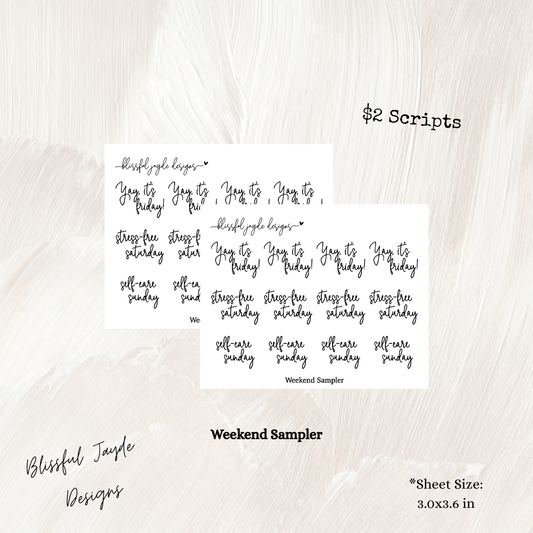 $2 Scripts
blissful jayde designs
Yay, it's Yay, it's Yay, it's Yay, it's
friday!
stress-free
saturday
self-care
sunday
blissful jayde designs
Yay, it's Yay, it's Yay, it's Yay, it's
friday! friday! friday! friday!
stress-free stress-free stress-free stress-free
saturday saturday saturday saturday
self-care self-care self-care self-care
sunday sunday sunday sunday
Weekend Sampler
Weekend Sampler
Blissful Jayde
Designs
*Sheet Size:
3.0x3.6 in